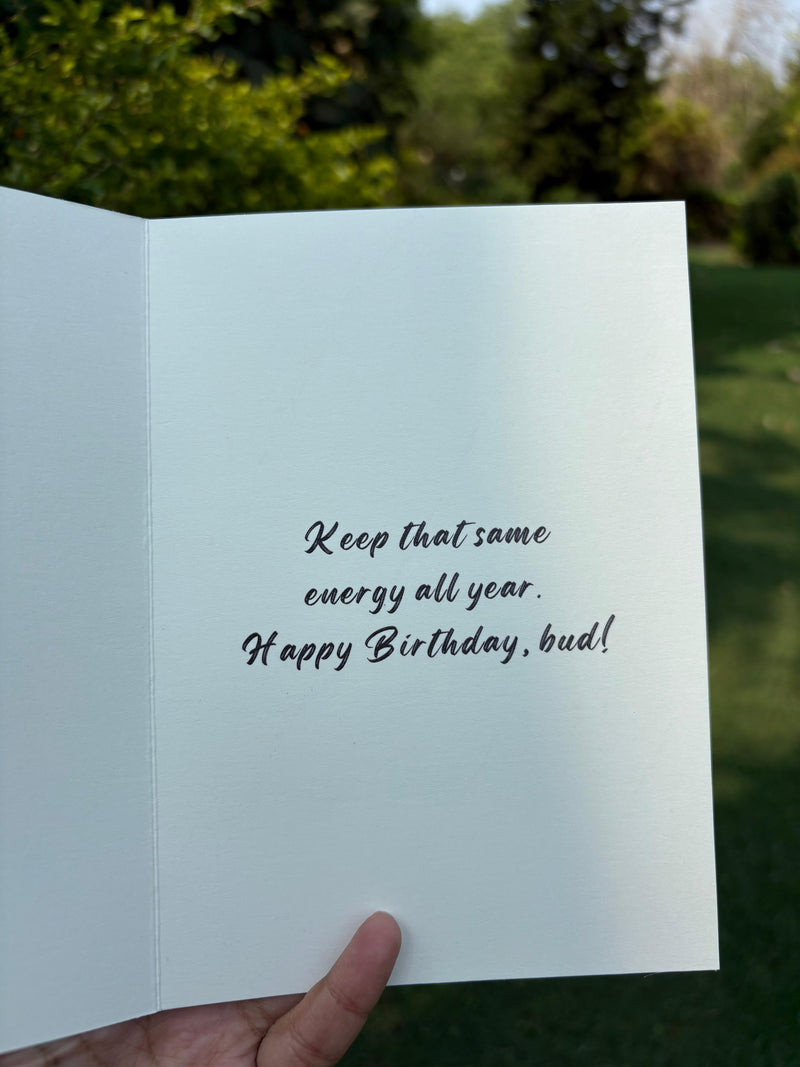 Keep that same
energy all year.
Happy Birthday, bud!